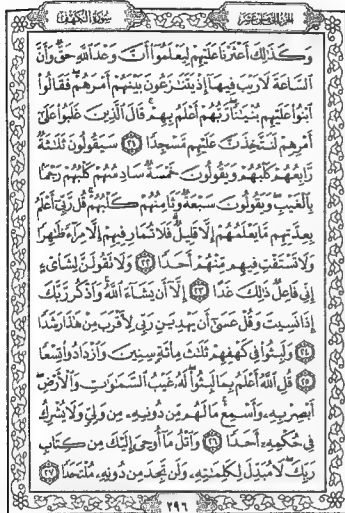 سُورَةُ الكَهْفِ
الجُزْءُ الخَامِسَ عَشَرَ
وَكَذَٰلِكَ أَعْثَرْنَا عَلَيْهِمْ لِيَعْلَمُوٓا۟ أَنَّ وَعْدَ ٱللَّهِ حَقٌّ وَأَنَّ
ٱلسَّاعَةَ لَا رَيْبَ فِيهَآ إِذْ يَتَنَٰزَعُونَ بَيْنَهُمْ أَمْرَهُمْ فَقَالُوا۟
ٱبْنُوا۟ عَلَيْهِم بُنْيَٰنًا رَّبُّهُمْ أَعْلَمُ بِهِمْ قَالَ ٱلَّذِينَ غَلَبُوا۟ عَلَىٰٓ
أَمْرِهِمْ لَنَتَّخِذَنَّ عَلَيْهِم مَّسْجِدًا ٢١ سَيَقُولُونَ ثَلَٰثَةٌ
رَّابِعُهُمْ كَلْبُهُمْ وَيَقُولُونَ خَمْسَةٌ سَادِسُهُمْ كَلْبُهُمْ رَجْمًۢا
بِٱلْغَيْبِ وَيَقُولُونَ سَبْعَةٌ وَثَامِنُهُمْ كَلْبُهُمْ قُل رَّبِّىٓ أَعْلَمُ
بِعِدَّتِهِم مَّا يَعْلَمُهُمْ إِلَّا قَلِيلٌ فَلَا تُمَارِ فِيهِمْ إِلَّا مِرَآءً ظَٰهِرًا
وَلَا تَسْتَفْتِ فِيهِم مِّنْهُمْ أَحَدًا ٢٢ وَلَا تَقُولَنَّ لِشَا۟ىْءٍ
إِنِّى فَاعِلٌ ذَٰلِكَ غَدًا ٢٣ إِلَّآ أَن يَشَآءَ ٱللَّهُ وَٱذْكُر رَّبَّكَ
إِذَا نَسِيتَ وَقُلْ عَسَىٰٓ أَن يَهْدِيَنِ رَبِّى لِأَقْرَبَ مِنْ هَٰذَا رَشَدًا
٢٤ وَلَبِثُوا۟ فِى كَهْفِهِمْ ثَلَٰثَ مِا۟ئَةٍ سِنِينَ وَٱزْدَادُوا۟ تِسْعًا
٢٥ قُلِ ٱللَّهُ أَعْلَمُ بِمَا لَبِثُوا۟ لَهُۥ غَيْبُ ٱلسَّمَٰوَٰتِ وَٱلْأَرْضِ
أَبْصِرْ بِهِۦ وَأَسْمِعْ مَا لَهُم مِّن دُونِهِۦ مِن وَلِىٍّ وَلَا يُشْرِكُ
فِى حُكْمِهِۦٓ أَحَدًا ٢٦ وَٱتْلُ مَآ أُوحِىَ إِلَيْكَ مِن كِتَابِ
رَبِّكَ لَا مُبَدِّلَ لِكَلِمَٰتِهِۦ وَلَن تَجِدَ مِن دُونِهِۦ مُلْتَحَدًا ٢٧
٢٩٦